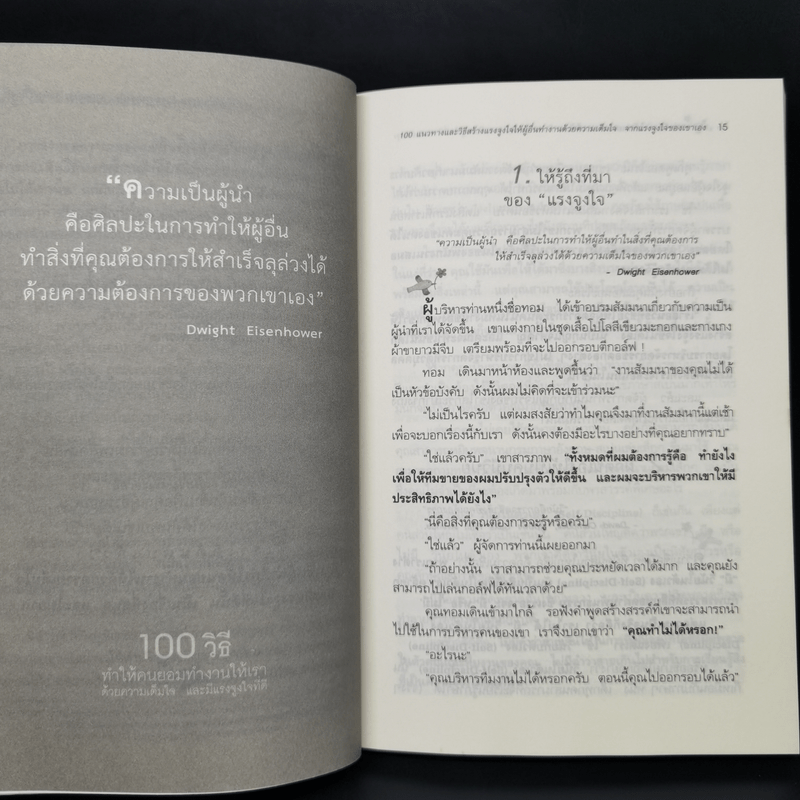 “ความเป็นผู้นำ
คือศิลปะในการทำให้ผู้อื่น
ทำสิ่งที่คุณต้องการให้สำเร็จลุล่วงได้
ด้วยความต้องการของพวกเขาเอง”
Dwight Eisenhower
100 วิธี
ทำให้คนยอมทำงานให้เรา
ด้วยความเต็มใจ และมีแรงจูงใจที่ดี
100 แนวทางและวิธีสร้างแรงจูงใจให้ผู้อื่นทำงานด้วยความเต็มใจ จากแรงจูงใจของเขาเอง 15
1. ให้รู้ถึงที่มา
ของ “แรงจูงใจ”
“ความเป็นผู้นำ คือศิลปะในการทำให้ผู้อื่นทำในสิ่งที่คุณต้องการ
ให้สำเร็จลุล่วงได้ด้วยความเต็มใจของพวกเขาเอง”
- Dwight Eisenhower
ผู้บริหารท่านหนึ่งชื่อทอม ได้เข้าอบรมสัมมนาเกี่ยวกับความเป็น
ผู้นำที่เราได้จัดขึ้น เขาแต่งกายในชุดเสื้อโปโลสีเขียวมะกอกและกางเกง
ผ้าขายาวมีจีบ เตรียมพร้อมที่จะไปออกรอบตีกอล์ฟ !
ทอม เดินมาหน้าห้องและพูดขึ้นว่า “งานสัมมนาของคุณไม่ได้
เป็นหัวข้อบังคับ ดังนั้นผมไม่คิดที่จะเข้าร่วมนะ”
“ไม่เป็นไรครับ แต่ผมสงสัยว่าทำไมคุณจึงมาที่งานสัมมนานี้แต่เช้า
เพื่อจะบอกเรื่องนี้กับเรา ดังนั้นคงต้องมีอะไรบางอย่างที่คุณอยากทราบ”
“ใช่แล้วครับ” เขาสารภาพ “ทั้งหมดที่ผมต้องการรู้คือ ทำยังไง
เพื่อให้ทีมขายของผมปรับปรุงตัวให้ดีขึ้น และผมจะบริหารพวกเขาให้มี
ประสิทธิภาพได้ยังไง”
“นี่คือสิ่งที่คุณต้องการจะรู้หรือครับ”
“ใช่แล้ว” ผู้จัดการท่านนี้เผยออกมา
“ถ้าอย่างนั้น เราสามารถช่วยคุณประหยัดเวลาได้มาก และคุณยัง
สามารถไปเล่นกอล์ฟได้ทันเวลาด้วย”
คุณทอมเดินเข้ามาใกล้ รอฟังคำพูดสร้างสรรค์ที่เขาจะสามารถนำ
ไปใช้ในการบริหารคนของเขา เราจึงบอกเขาว่า “คุณทำไม่ได้หรอก!”
“อะไรนะ”
“คุณบริหารทีมงานไม่ได้หรอกครับ ตอนนี้คุณไปออกรอบได้แล้ว”